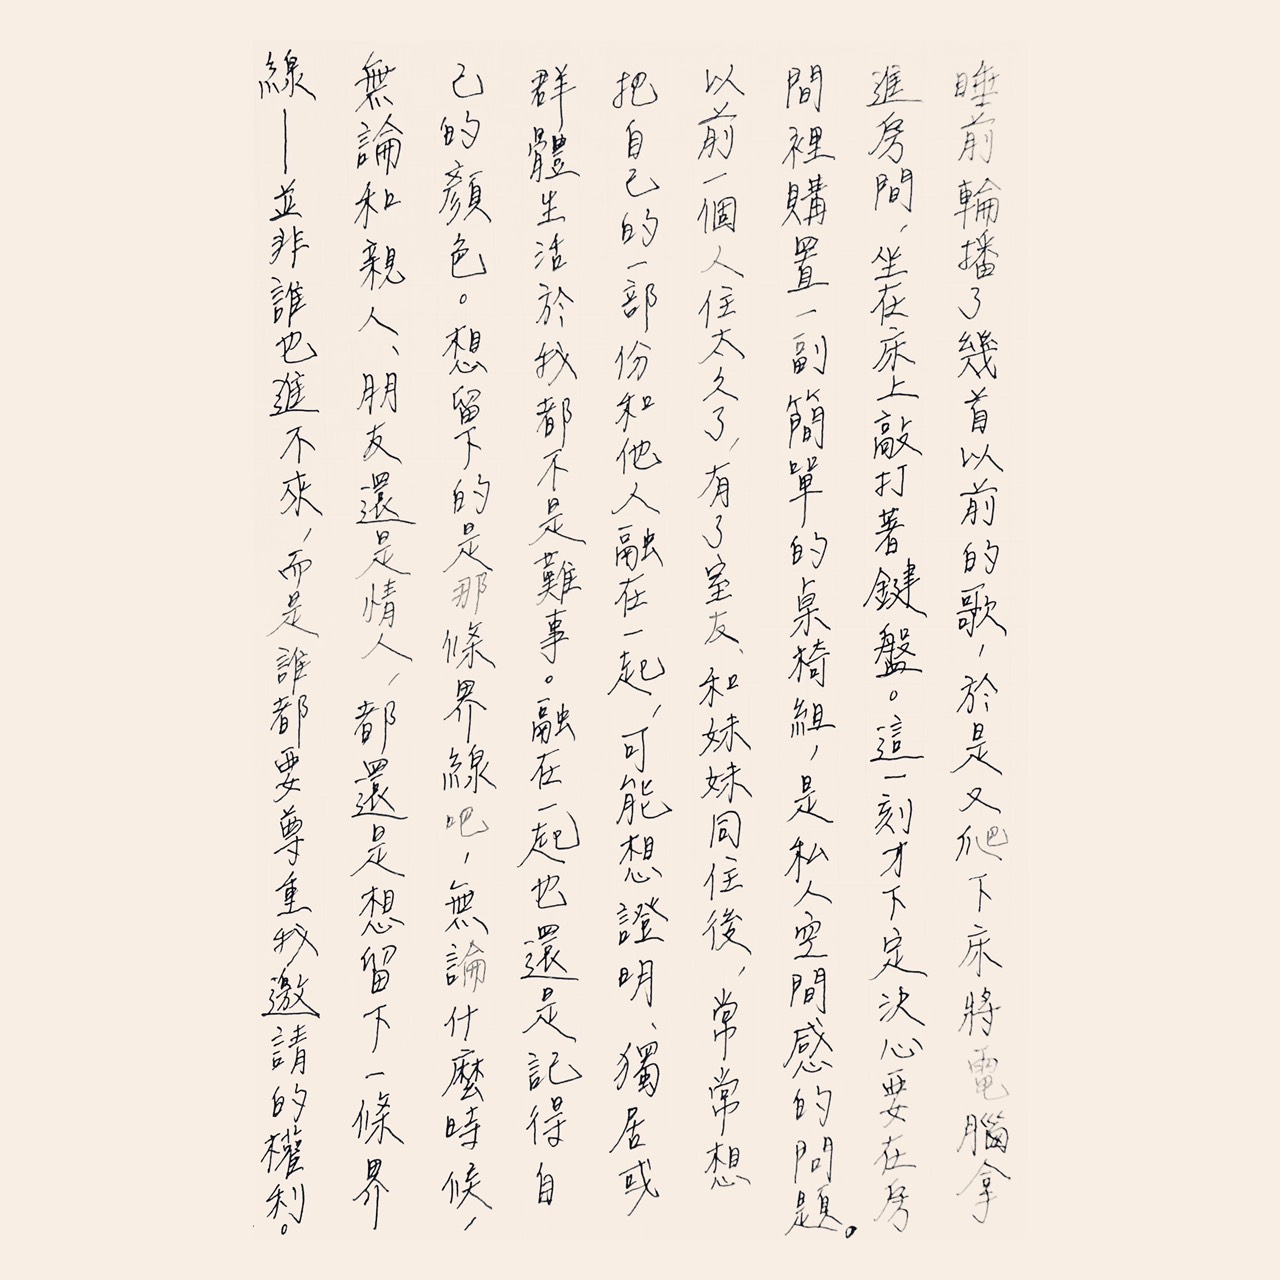 睡前輪播了幾首以前的歌，於是又爬下床將電腦拿
進房間，坐在床上敲打著鍵盤。這一刻才下定決心要在房
間裡購置一副簡單的桌椅組，是私人空間感的問題。
以前一個人住太久了，有了室友、和妹妹同住後，常常想
把自己的一部份和他人融在一起，可能想證明、獨居或
群體生活於我都不是難事。融在一起也還是記得自
己的顏色。想留下的是那條界線吧，無論什麼時候，
無論和親人、朋友還是情人，都還是想留下一條界
線—並非誰也進不來，而是誰都要尊重我邀請的權利。